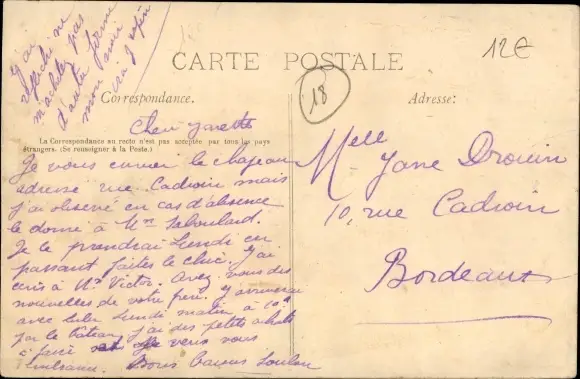 J'ai
réfléchi ne
m'achète pas
d'autre forme
mon amie
ira
12€
CARTE POSTALE
18
Correspondance.
Adresse:
La Correspondance au recto n'est pas acceptée par tous les pays
étrangers. (Se renseigner à la Poste.)
Je vous envoie le chapeau
adresse rue Cadroin mais
j'ai observé en cas d'absence
le donne à Mme
Je le prendrai Lundi en
passant faites le chic. J'ai
écris à Mr Victor. Avez vous des
nouvelles de votre J'arriverai
avec Lundi matin à 10h
par le bâteau j'ai des petits achats
à faire je verrai vous
Bons baisers
Mell
Jane Drouin
10, rue Cadroin
Bordeaux